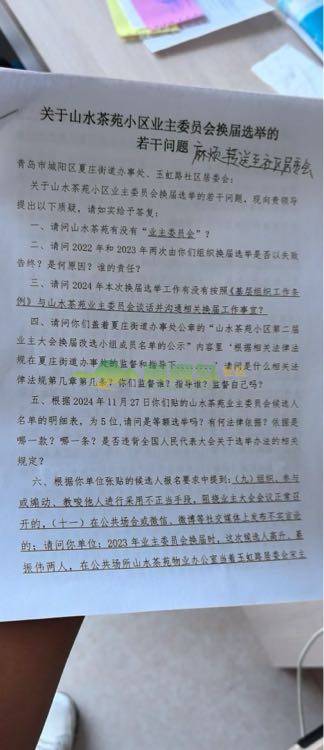 关于山水茶苑小区业主委员会换届选举的
若干问题
麻烦转送至社区居委会
青岛市城阳区夏庄街道办事处、玉虹路社区居委会：
关于山水茶苑小区业主委员会换届选举的若干问题，现向贵领导
提出以下质疑，请如实给予答复：
一、请问山水茶苑有没有“业主委员会”？
二、请问 2022 年和 2023 年两次由你们组织换届选举是否以失败
告终？是何原因？谁的责任？
三、请问 2024 年本次换届选举工作有没有按照《基层组织工作条
例》与山水茶苑业主委员会谈话并沟通相关换届工作事宜？
四、请问你们盖着夏庄街道办事处公章的“山水茶苑小区第二届
业主大会换届改选小组成员名单的公示”内容里‘根据相关法律法
规在夏庄街道办事处的监督和指导下......’请问是什么相关法
律法规第几章第几条？你们监督谁？指导谁？监督自己吗？
五、根据 2024 年 11 月 27 日你们贴的山水茶苑业主委员会候选人
名单的明细表，为 5 位，请问是等额选举吗？有何法律依据？依据是
哪一款？哪一条？是否违背全国人民代表大会关于选举办法的相关
规定？
六、根据你单位张贴的候选人报名要求中提到：（九）组织、参与
或煽动、教唆他人进行采用不正当手段，阻挠业主大会会议正常召
开的，（十一）在公共场合或微信、微博等社交媒体上发布不实言论
的；请问你单位：2023 年业主委员会换届时，这次候选人高升、綦
振伟两人，在公共场所山水茶苑物业办公室当着玉虹路居委会宋主